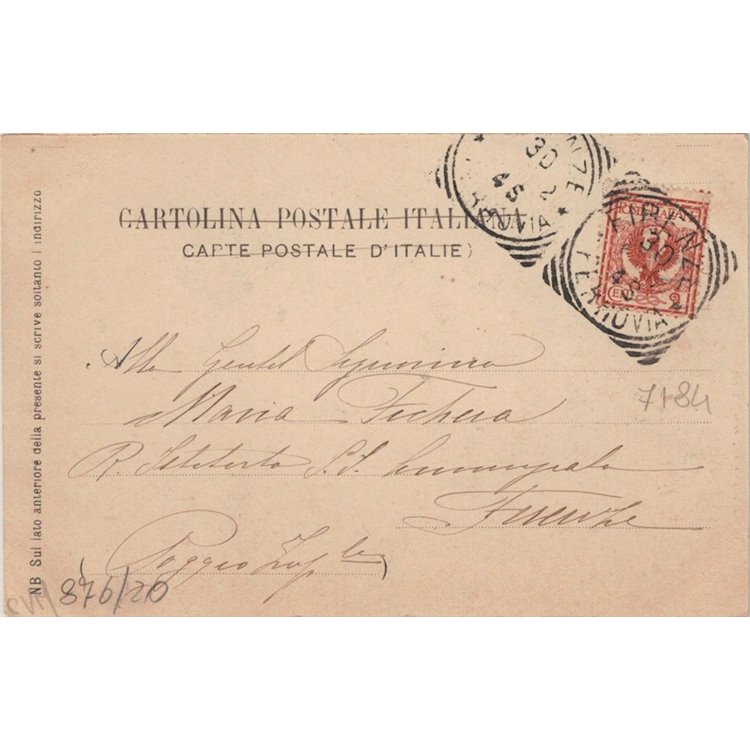 CARTOLINA POSTALE ITALIANA
CARTE POSTALE D'ITALIE)
NB Sul lato anteriore della presente si scrive soltanto l indirizzo
NZE
30
2
4S
FIRENZE
30
2
4S
FERROVIA
2
7184
Alla Gentil Signorina
Maria Fichera
R. Istituto S.S. Annunziata
Firenze
Poggio Imp.le
876/20